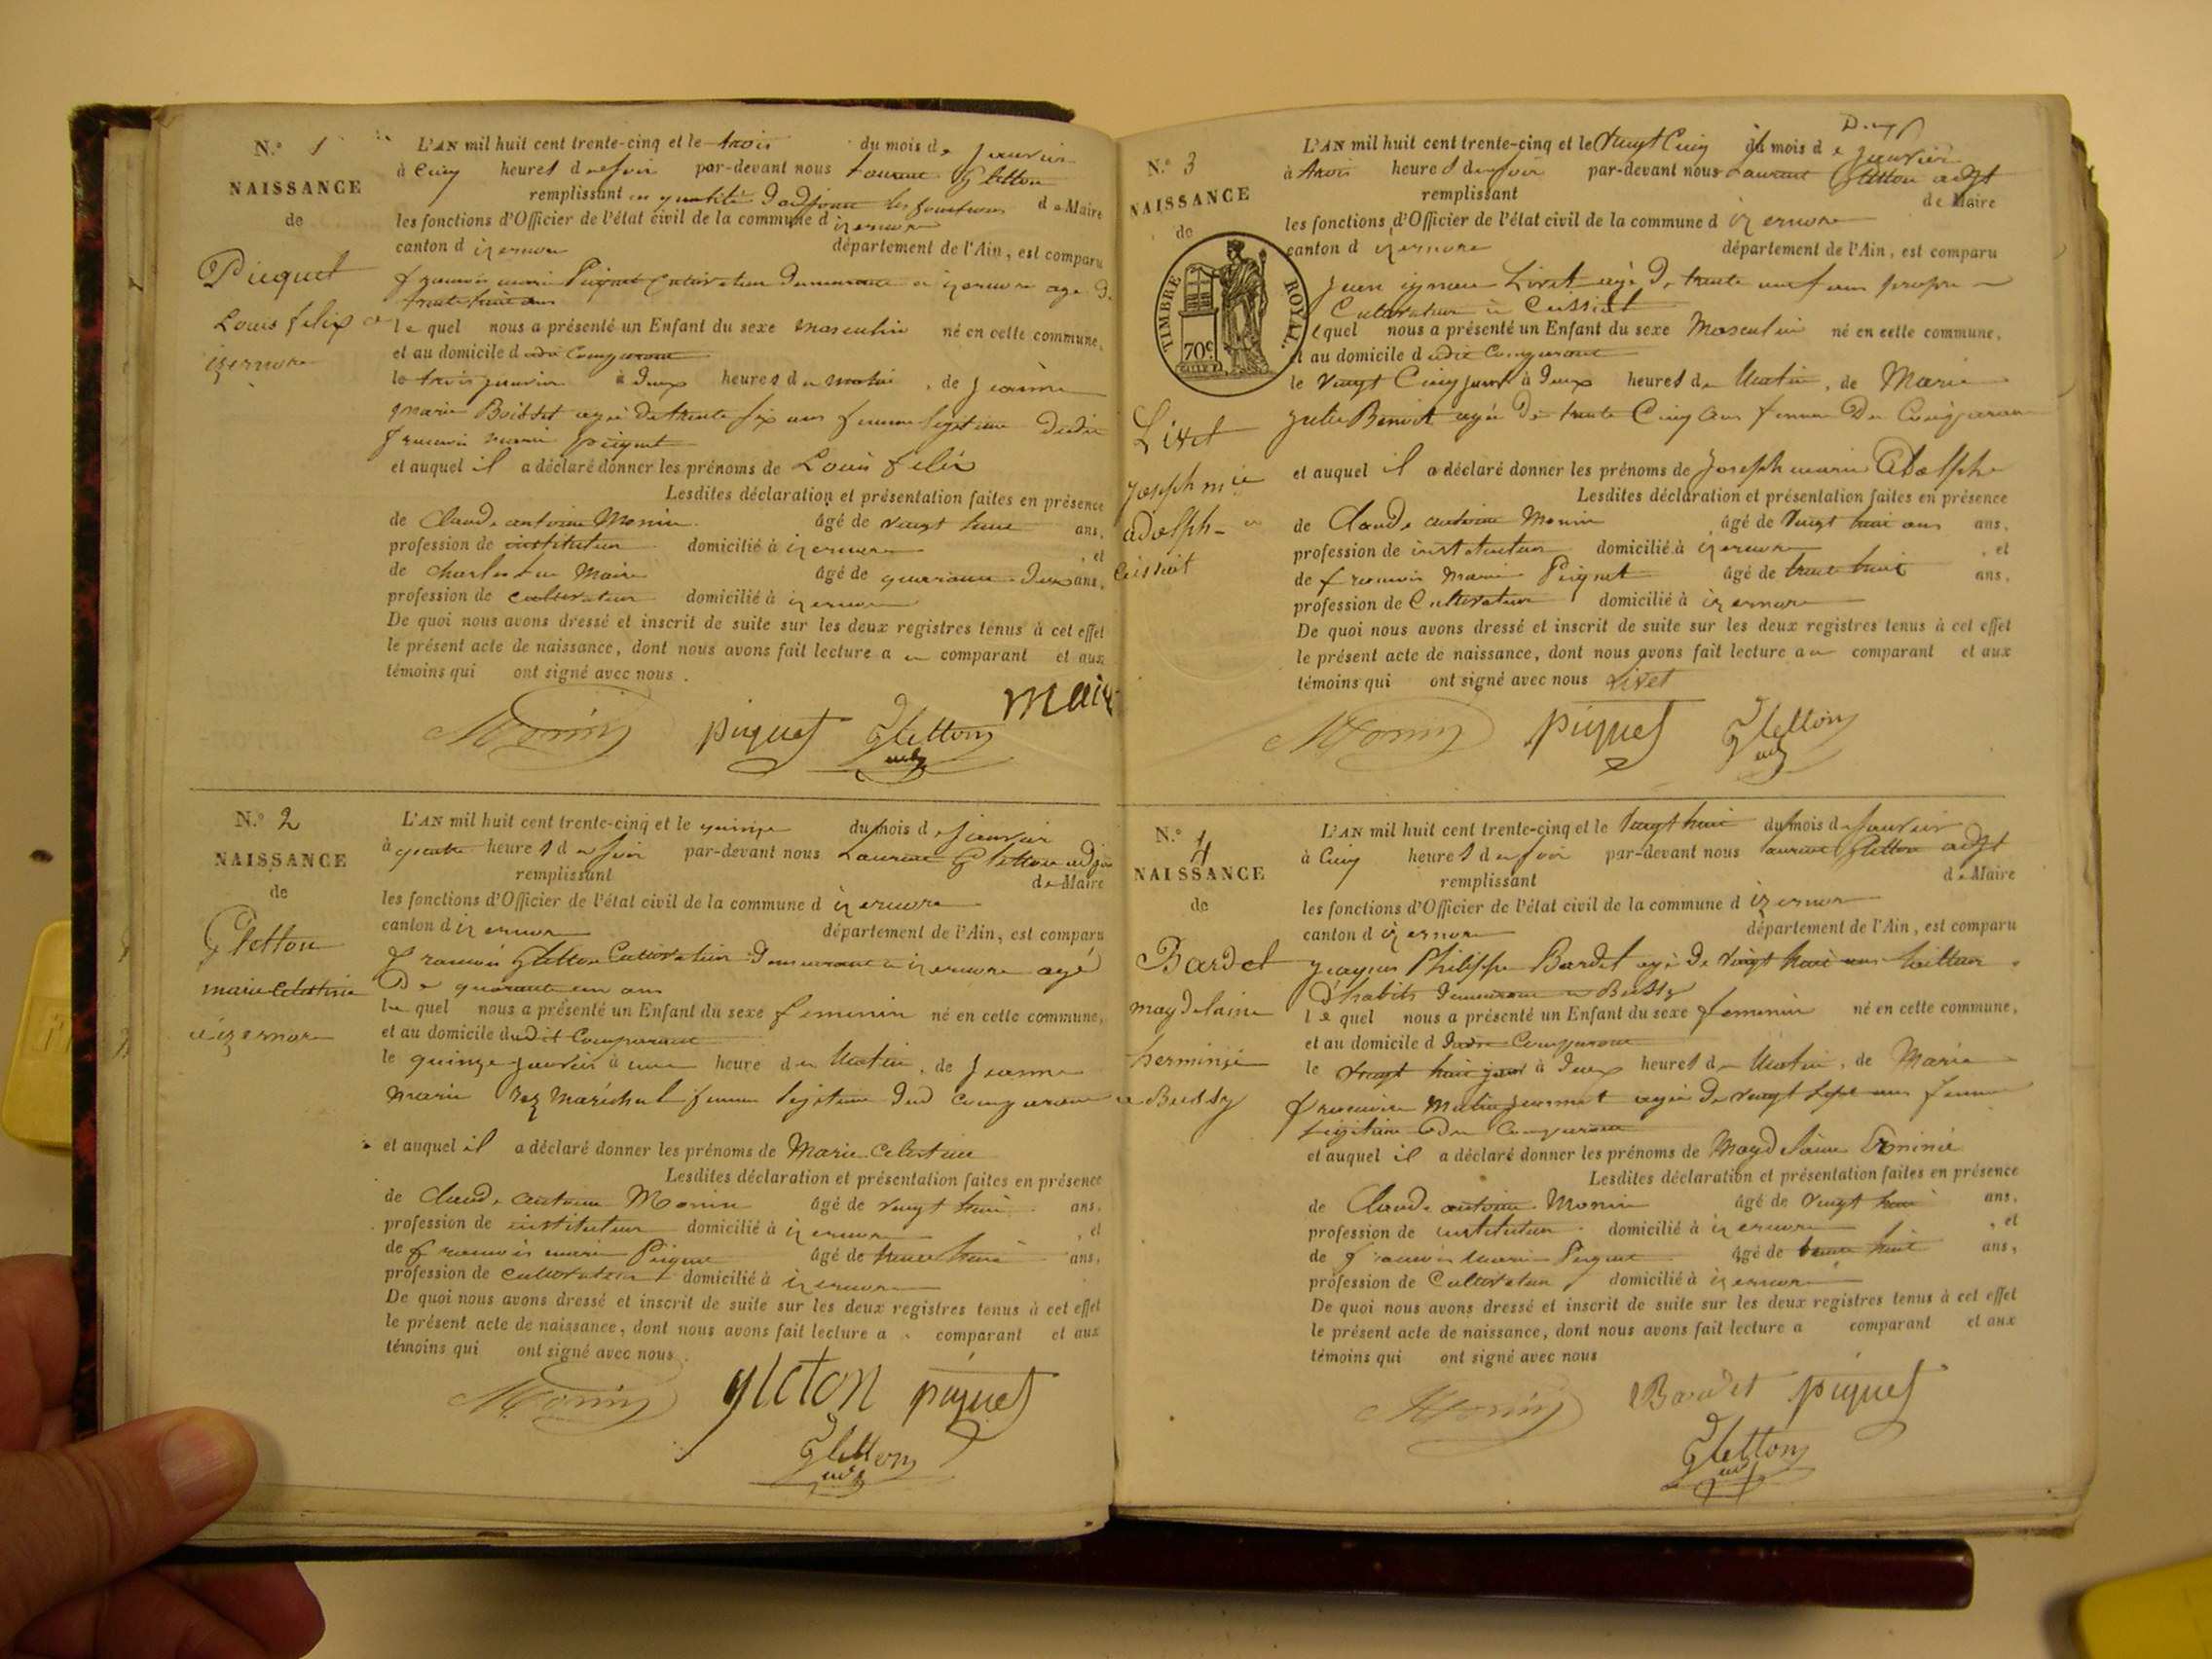 N.º 1
NAISSANCE
de
Picquet
Louis felix a
izernore
L'AN mil huit cent trente-cinq et le trois du mois de janvier
à Cinq heures du soir par-devant nous Laurent Gletton
remplissant en qualité d'adjoint les fonctions de Maire
les fonctions d'Officier de l'état civil de la commune d izernore
canton d izernore département de l'Ain, est comparu
françois marie Piquet Cultivateur demeurant a izernore agé de
trente huit ans
le quel nous a présenté un Enfant du sexe masculin né en cette commune,
et au domicile dudit Comparant
le trois janvier à deux heures du matin, de jeanne
marie Boisset agée de trente six ans femme legitime dudit
françois marie piquet
et auquel il a déclaré donner les prénoms de Louis felix
Lesdites déclaration et présentation faites en présence
de Claude antoine Monin âgé de vingt huit ans,
profession de instituteur domicilié à izernore, et
de Charles Maire âgé de quarante deux ans,
profession de cultivateur domicilié à izernore
De quoi nous avons dressé et inscrit de suite sur les deux registres tenus à cet effet
le présent acte de naissance, dont nous avons fait lecture au comparant et aux
témoins qui ont signé avec nous.
Maire
Monin piquet Gletton
adj
N.º 2
NAISSANCE
de
Gletton
marie Celestine
a izernore
L'AN mil huit cent trente-cinq et le quinze du mois de janvier
à quatre heures du soir par-devant nous Laurent Gletton adjoint
remplissant de Maire
les fonctions d'Officier de l'état civil de la commune d izernore
canton d izernore département de l'Ain, est comparu
françois Gletton Cultivateur demeurant a izernore agé
De quarante un ans
le quel nous a présenté un Enfant du sexe feminin né en cette commune,
et au domicile dudit Comparant
le quinze janvier à une heure du Matin, de jeanne
marie maréchal femme legitime dud comparant
et auquel il a déclaré donner les prénoms de Marie Celestine
Lesdites déclaration et présentation faites en présence
de Claude antoine Monin âgé de vingt huit ans,
profession de instituteur domicilié à izernore, et
de françois marie Piquet âgé de trente huit ans,
profession de cultivateur domicilié à izernore
De quoi nous avons dressé et inscrit de suite sur les deux registres tenus à cet effet
le présent acte de naissance, dont nous avons fait lecture a comparant et aux
témoins qui ont signé avec nous.
Monin gleton piquet
Gletton
adj
N.º 3
NAISSANCE
de
TIMBRE ROYAL.
70c
Livet
joseph mie
adolph a
Ceissiat
L'AN mil huit cent trente-cinq et le vingt Cinq du mois de janvier
à trois heures du soir par-devant nous Laurent Gletton adjt
remplissant de Maire
les fonctions d'Officier de l'état civil de la commune d izernore
canton d izernore département de l'Ain, est comparu
jean Livet agé de trente neuf ans propre
Cultivateur a Ceissiat
lequel nous a présenté un Enfant du sexe Masculin né en cette commune,
et au domicile dudit Comparant
le vingt Cinq janvr à deux heures du Matin, de Marie
julie Benoit agée de trente Cinq ans femme Du Comparant
et auquel il a déclaré donner les prénoms de joseph marie Adolphe
Lesdites déclaration et présentation faites en présence
de Claude antoine Monin âgé de vingt huit ans ans,
profession de instituteur domicilié à izernore, et
de françois Marie Piquet âgé de trente huit ans,
profession de Cultivateur domicilié à izernore
De quoi nous avons dressé et inscrit de suite sur les deux registres tenus à cet effet
le présent acte de naissance, dont nous avons fait lecture au comparant et aux
témoins qui ont signé avec nous Livet
Monin piquet Gletton
adj
N.º 4
NAISSANCE
de
Bardet
magdelaine
herminie
a Bussy
L'AN mil huit cent trente-cinq et le vingt huit du mois de janvier
à Cinq heures du soir par-devant nous Laurent Gletton adjt
remplissant de Maire
les fonctions d'Officier de l'état civil de la commune d izernore
canton d izernore département de l'Ain, est comparu
jacques Philippe Bardet agé de vingt huit ans tailleur
d'habits demeurant a Bussy
lequel nous a présenté un Enfant du sexe feminin né en cette commune,
et au domicile dudit Comparant
le vingt huit janvr à deux heures du Matin, de Marie
françoise agée de vingt sept ans femme
Legitime du Comparant
et auquel il a déclaré donner les prénoms de Magdelaine Erminie
Lesdites déclaration et présentation faites en présence
de Claude antoine Monin âgé de vingt huit ans,
profession de instituteur domicilié à izernore, et
de françois Marie Piquet âgé de trente huit ans,
profession de Cultivateur domicilié à izernore
De quoi nous avons dressé et inscrit de suite sur les deux registres tenus à cet effet
le présent acte de naissance, dont nous avons fait lecture a comparant et aux
témoins qui ont signé avec nous
Monin Bardet piquet
Gletton
adj